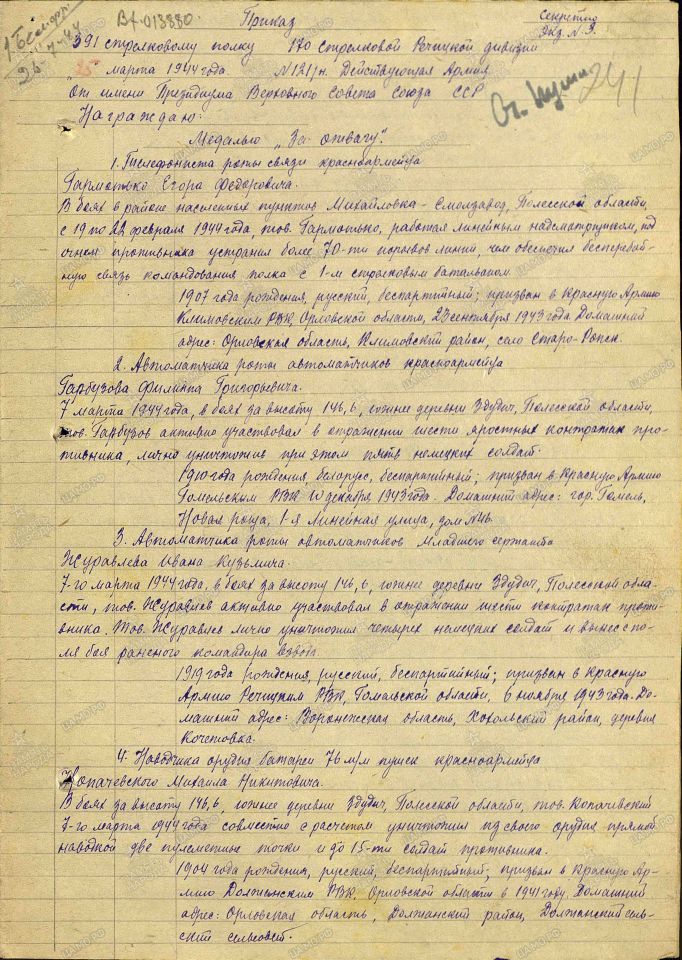 Вх-013880.
Приказ
Секретно
Экз. N 3.
391 стрелковому полку 170 стрелковой Речицкой дивизии
25 марта 1944 года N 121/н. Действующая Армия
От имени Президиума Верховного Совета Союза ССР
241
Награждаю:
Медалью „За отвагу".
1. Телефониста роты связи красноармейца
Гармотько Егора Федоровича.
В боях в районе населенных пунктов Михайловка - Смолзавод, Полесской области,
с 19 по 22 февраля 1944 года тов. Гармотько, работая линейным надсмотрщиком, под
огнем противника устранил более 70-ти порывов линии, чем обеспечил бесперебой-
ную связь командования полка с 1-м стрелковым батальоном.
1907 года рождения, русский, беспартийный; призван в Красную Армию
Климовским РВК, Орловской области, 23 сентября 1943 года. Домашний
адрес: Орловская область, Климовский район, село Старо-Ропск.
2. Автоматчика роты автоматчиков красноармейца
Гарбузова Филиппа Григорьевича.
7 марта 1944 года, в боях за высоту 146,6, южнее деревни Здудич, Полесской области,
тов. Гарбузов активно участвовал в отражении шести яростных контратак про-
тивника, лично уничтожив при этом пять немецких солдат.
1910 года рождения, белорус, беспартийный; призван в Красную Армию
Гомельским РВК 10 декабря 1943 года. Домашний адрес: гор. Гомель,
Новая роща, 1-я Линейная улица, дом N 46.
3. Автоматчика роты автоматчиков младшего сержанта
Журавлева Ивана Кузьмича.
7-го марта 1944 года, в боях за высоту 146,6, южнее деревни Здудич, Полесской обла-
сти, тов. Журавлев активно участвовал в отражении шести контратак проти-
вника. Тов. Журавлев лично уничтожил четырех немецких солдат и вынес с по-
ля боя раненого командира взвода.
1919 года рождения, русский, беспартийный; призван в Красную
Армию Речицким РВК, Гомельской области, 6 ноября 1943 года. До-
машний адрес: Воронежская область, Хохольский район, деревня
Кочетовка.
4. Наводчика орудия батареи 76 м/м пушек красноармейца
Копачевского Михаила Никитовича.
В боях за высоту 146,6, южнее деревни Здудич, Полесской области, тов. Копачевский
7-го марта 1944 года совместно с расчетом уничтожил из своего орудия прямой
наводкой две пулеметные точки и до 15-ти солдат противника.
1904 года рождения, русский, беспартийный; призван в Красную Ар-
мию Должанским РВК, Орловской области в 1941 году. Домашний
адрес: Орловская область, Должанский район, Должанский сель-
ский сельсовет.